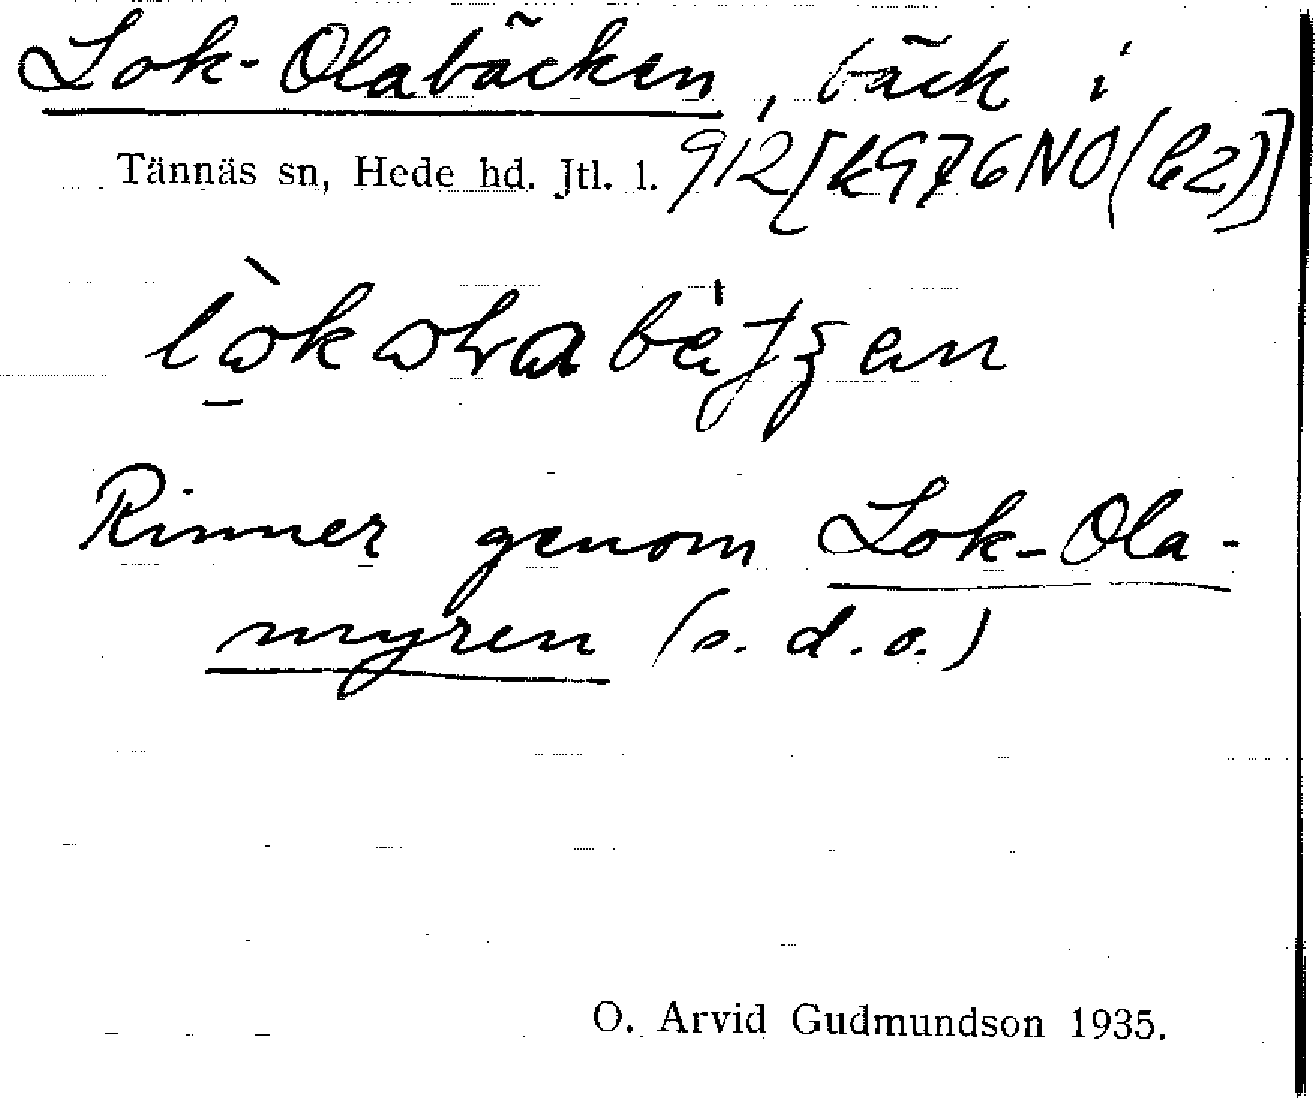 Lok-Olabäcken, bäck i
Tännäs sn, Hede hd. Jtl. l. 912 [k976NO(b2)]
Rinner genom Lok-Ola-
myren (s. d. o.)
O. Arvid Gudmundson 1935.